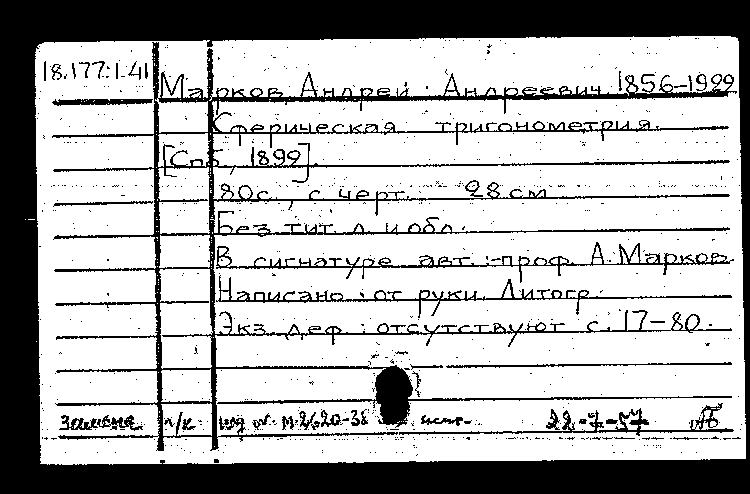 18.177:1.41
Марков, Андрей Андреевич. 1856–1922
Сферическая тригонометрия.
[Спб, 1899].
80 с., с черт. 28 см
Без тит. л. и обл.
В сигнатуре авт.: проф. А. Марков
Написано от руки. Литогр.
Экз. деф.: отсутствуют с. 17–80.
Замена п/к инв. №. М-2620-38 22-7-57